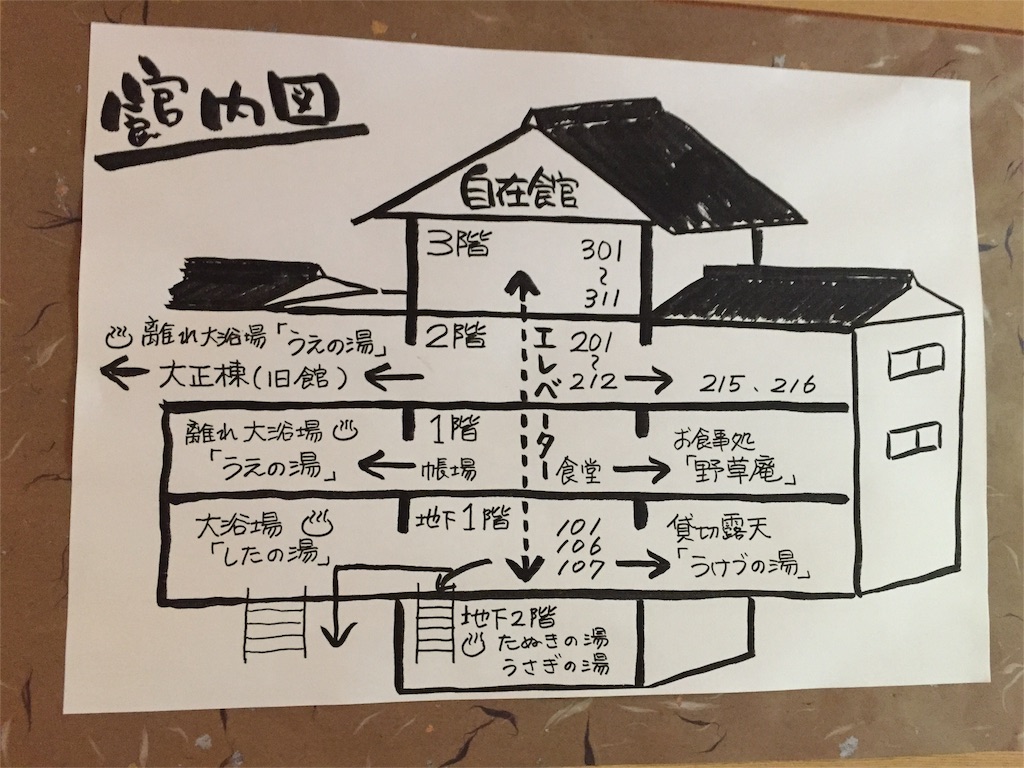 館内図
自在館
3階
301
~
311
♨離れ大浴場「うえの湯」
大正棟(旧館)
2階
エレベーター
201
~
212
215、216
離れ大浴場♨
「うえの湯」
1階
帳場
食堂
お食事処
「野草庵」
大浴場♨
「したの湯」
地下1階
101
106
107
貸切露天
「うけづの湯」
地下2階
♨たぬきの湯
うさぎの湯